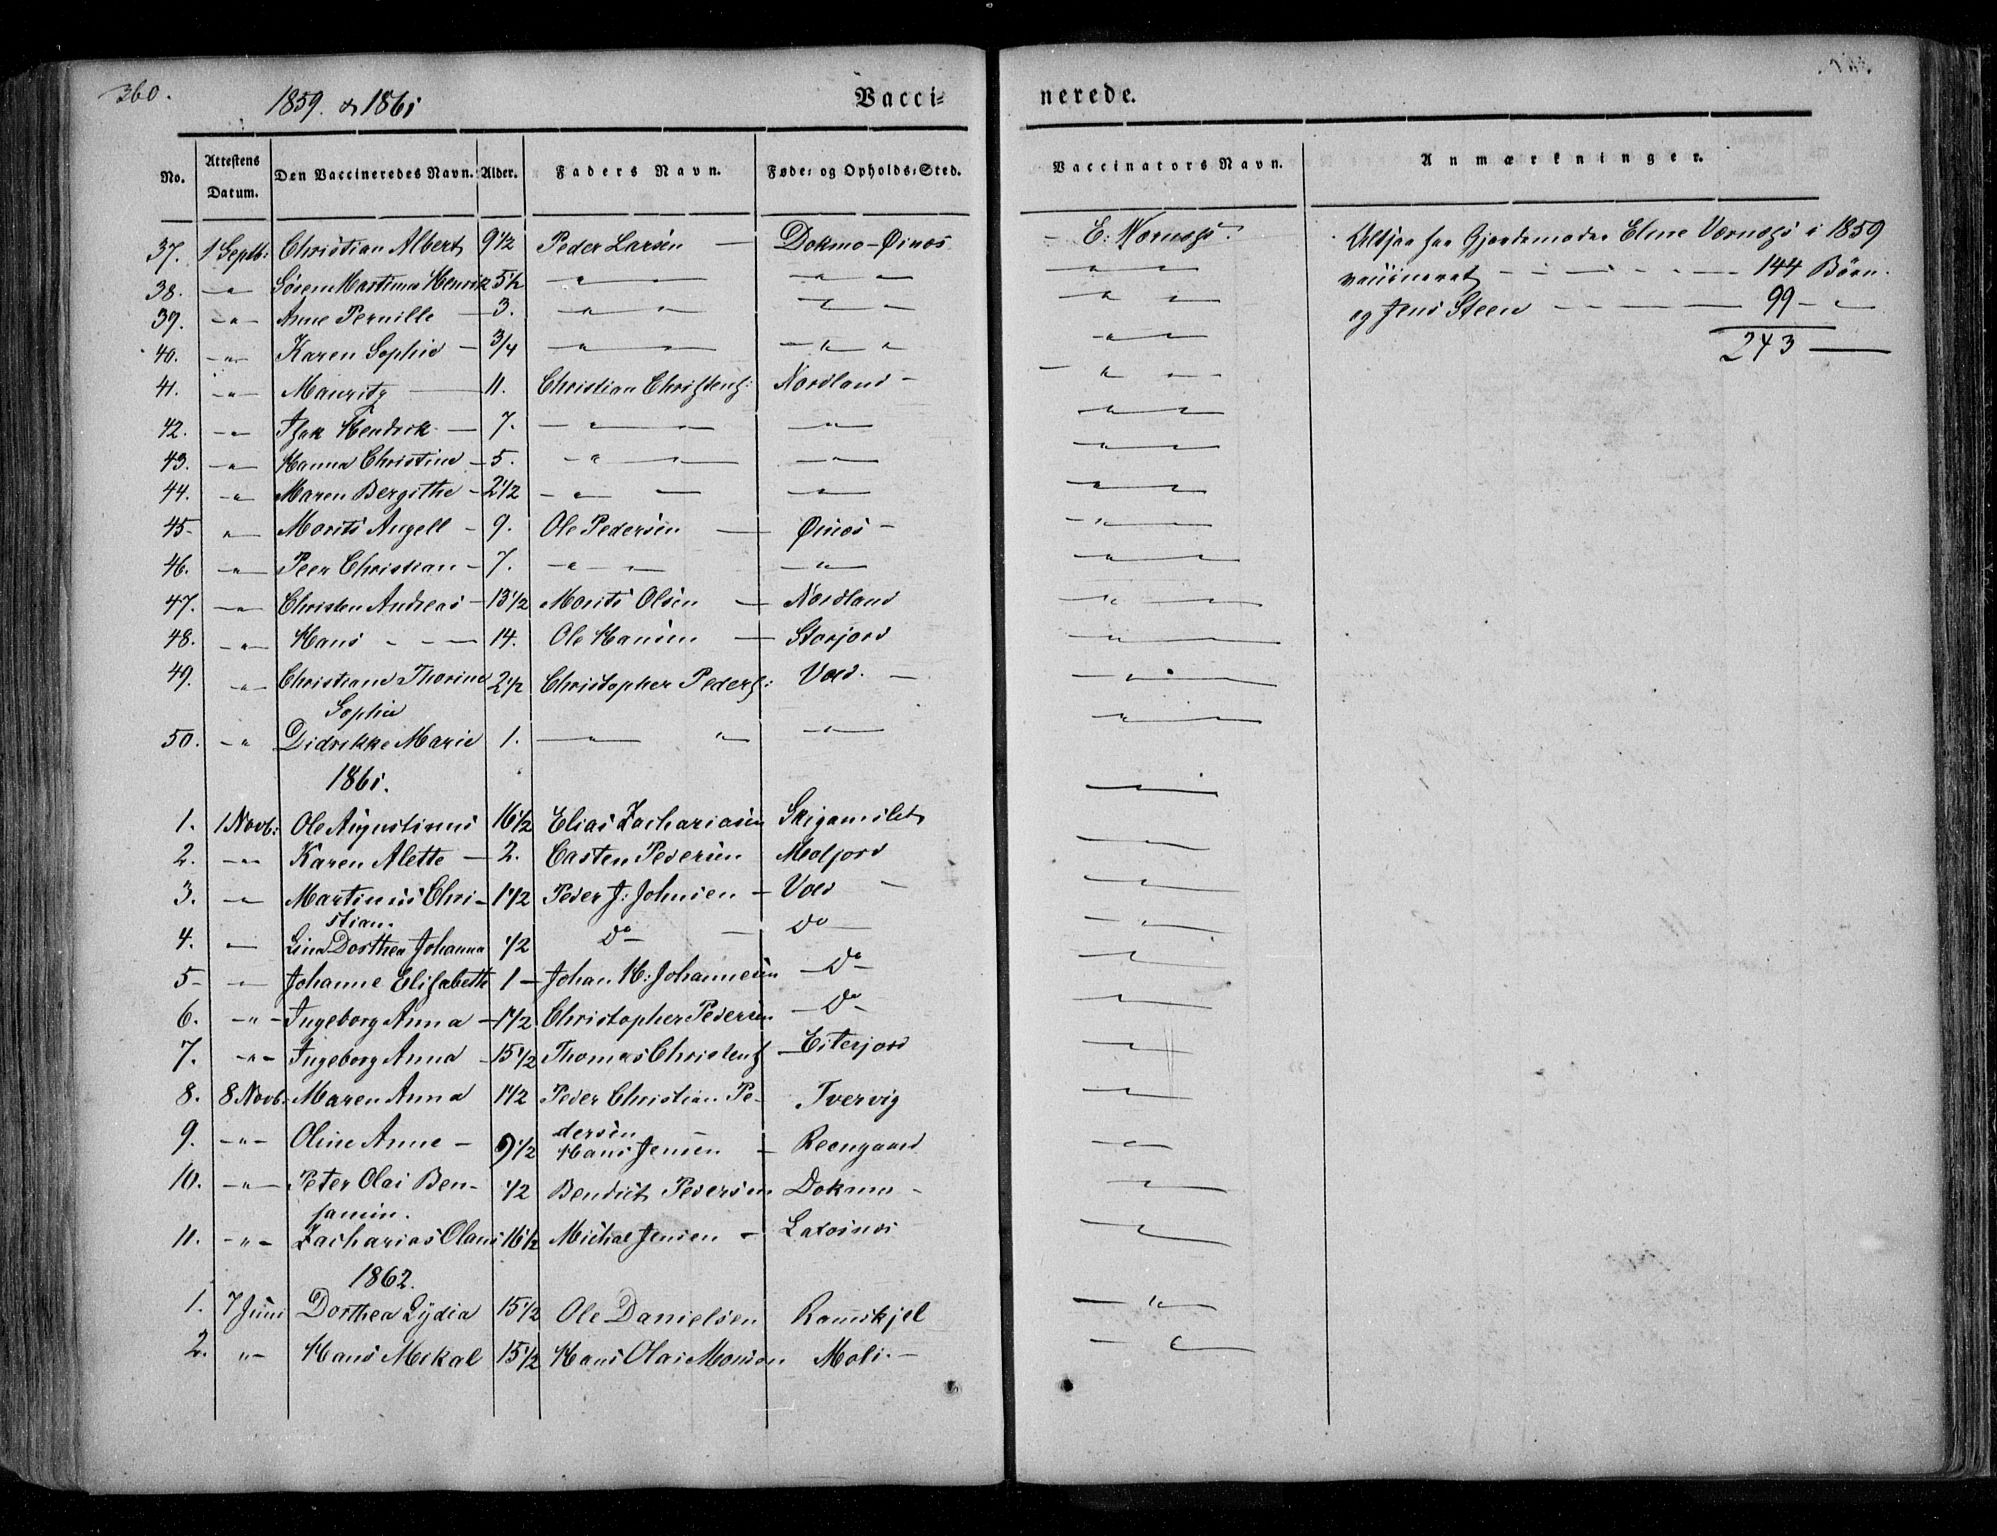 360.
1859. & 1861
Vaccinerede.
No. Attestens Datum. Den Vaccineredes Navn. Alder. Faders Navn. Føde- og Opholds-Sted. Vaccinators Navn. Anmærkninger.
37. 1 Septb: Christian Albert 9 1/2 Peder Larsen — Dokmo-Øinæs — E:
38. — " — Søren Martinus Henrik 5 1/2 — " — — " "
39. — " — Anne Pernille — 3. — " " — " —
40. — " — Karen Sophie — 3/4 — " — — " "
41. — " — Mauritz — 11. Christian Christens: Nordland —
42. — " Isak Hendrik — 7. — " — — " —
43. — " Hanna Christine — 5. — " — — " —
44. — " Maren Bergithe — 2 1/2 — " — — " —
45 — " — Morits Angell — 9. Ole Pedersen — Øinæs —
46. — " — Peer Christian — 7. — " — — " —
47. — " — Christen Andreas — 13 1/2 Morits Olsen — Nordland
48. — " — Hans — — — 14. Ole Hansen — Storjord
49. — " — Christiane Thorine Sophie 2 1/2 Christopher Peders: Vold. —
50. — " Didrikke Marie 1. — " " — " —
1861.
1. 1 Novb: Ole Augustinus 16 1/2 Elias Zachariasen
2. — " — Karen Alette — 2. Casten Pedersen Melfjord
3. — " — Martinus Christian. 1 1/2 Peder J: Johnsen — Vold —
4. — " — Lina Dorthea Johanna 1/2 Do — Do —
5 — " — Johanne Elisabeth 1 — Johan H: Johannesen — Do —
6. — " — Ingeborg Anna — 1 1/2 Christopher Pedersen — Do —
7. — " — Ingeborg Anna — 15 1/2 Thomas Christens — Eiterjord
8. 8 Novb: Maren Anna 1 1/2 Peder Christian Pedersen Tvervig
9. — " — Oline Anne — 9 1/2 Hans Jensen — Reengaard
10. — " — Peter Olai Benjamin. 1/2 Bendict Pedersen Dokmo —
11. — " — Zacharias Olaus 16 1/2 Michal Jensen —
1862.
1. 7 Juni Dorthea Lydia 15 1/2 Ole Danielsen Ramskjel
2. " — Hans Mikal 15 1/2 Hans Olai Monsen Moli. —
Altsaa har Gjordemoder Elne i 1859
vaccineret — — — — — 144 Børn.
og Jens Steen — — — — 99 — "
243 —